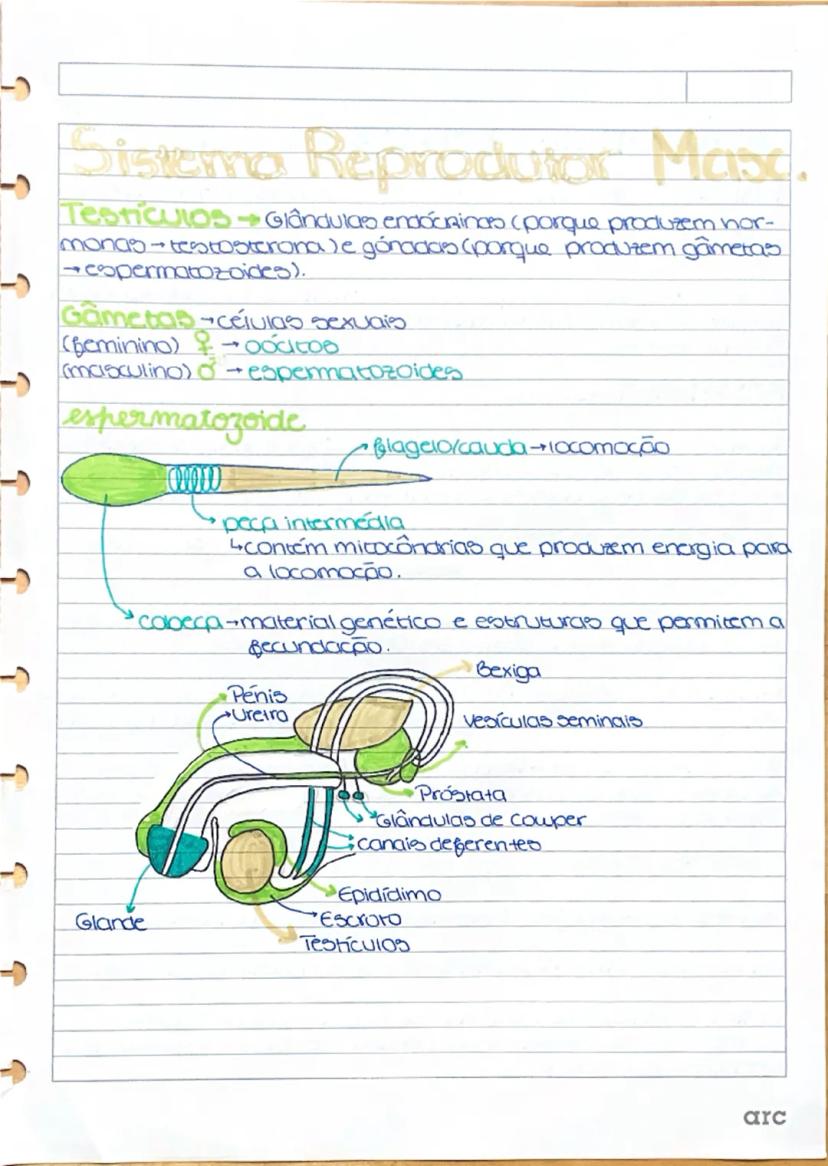 Sistema Reprodutor Masc.
Testículos → Glândulas endócrinas (porque produzem hor-
monas → testosterona) e gónadas (porque produzem gâmetas
→ espermatozoides).
Gâmetas → células sexuais
(feminino) ♀ → oócitos
(masculino) ♂ → espermatozoides
espermatozoide
flagelo/cauda → locomoção
peça intermédia
↳ contém mitocôndrias que produzem energia para
a locomoção.
cabeça → material genético e estruturas que permitem a
fecundação.
Bexiga
Pénis
Ureiro
Vesículas seminais
Próstata
Glândulas de Cowper
canais deferentes
Epidídimo
Glande
Escroto
Testículos
arc